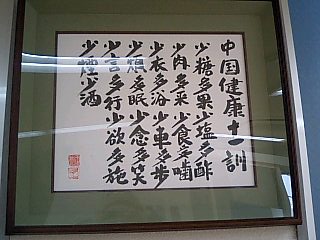 中国健康十一訓
少糖多果少塩多酢
少肉多菜少食多噛
少衣多浴少車多歩
少煩多眠少念多笑
少言多行少欲多施
少煙少酒